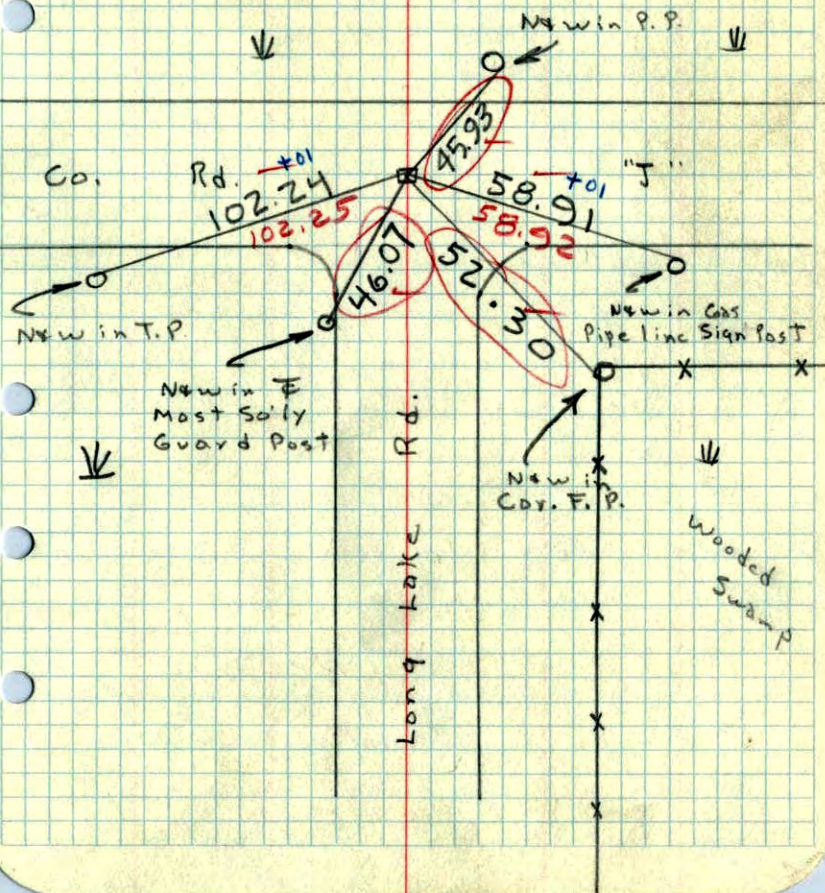 N&W in P.P.
45.93
Co. Rd. "J"
+01
102.24
102.25
+01
58.91
58.92
46.07
52.30
N&W in T.P.
N&W in Gas
Pipeline Sign Post
N&W in ℄
Most So'ly
Guard Post
N&W in
Cor. F.P.
Long Lake Rd.
Wooded
Swamp